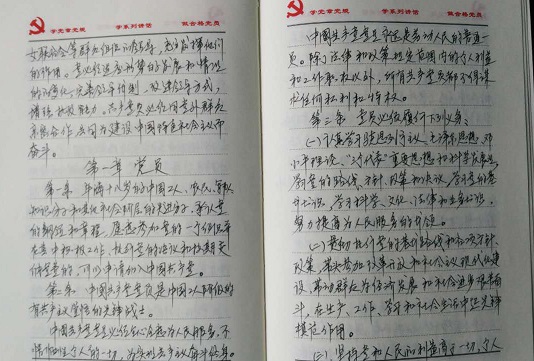 学党章党规
学系列讲话
做合格党员
女联合会等群众组织的领导，充分发挥它们
的作用。党必须适应形势的发展和情况
的变化，完善领导体制，改进领导方式，
增强执政能力。共产党员必须同党外群众
亲密合作，共同为建设中国特色社会主义而
奋斗。
第一章 党员
第一条 年满十八岁的中国工人、农民、军人、
知识分子和其他社会阶层的先进分子，承认党
的纲领和章程，愿意参加党的一个组织并
在其中积极工作、执行党的决议和按期交
纳党费的，可以申请加入中国共产党。
第二条 中国共产党党员是中国工人阶级的
有共产主义觉悟的先锋战士。
中国共产党党员必须全心全意为人民服务，不
惜牺牲个人的一切，为实现共产主义奋斗终身。
学党章党规
学系列讲话
做合格党员
中国共产党党员永远是劳动人民的普通一
员。除了法律和政策规定范围内的个人利益
和工作职权以外，所有共产党员都不得谋
求任何私利和特权。
第三条 党员必须履行下列义务：
(一)认真学习马克思列宁主义、毛泽东思想、邓
小平理论、“三个代表”重要思想和科学发展观，
学习党的路线、方针、政策和决议，学习党的基
本知识，学习科学、文化、法律和业务知识，
努力提高为人民服务的本领。
(二)贯彻执行党的基本路线和各项方针、
政策，带头参加改革开放和社会主义现代化建
设，带动群众为经济发展和社会进步艰苦奋
斗，在生产、工作、学习和社会生活中起先锋
模范作用。
(三)坚持党和人民的利益高于一切，个人